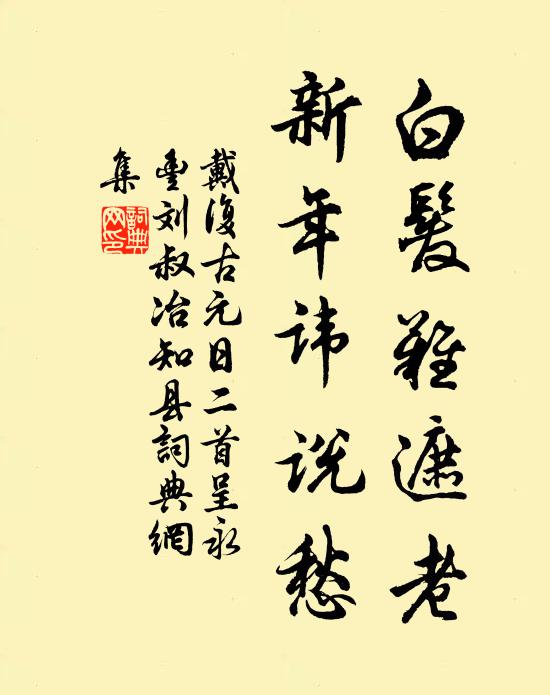 白髮難遮老
新年讳説愁
戴復古元日二首呈永
豊刘叔冶知县詞典網
集
詞典
网印